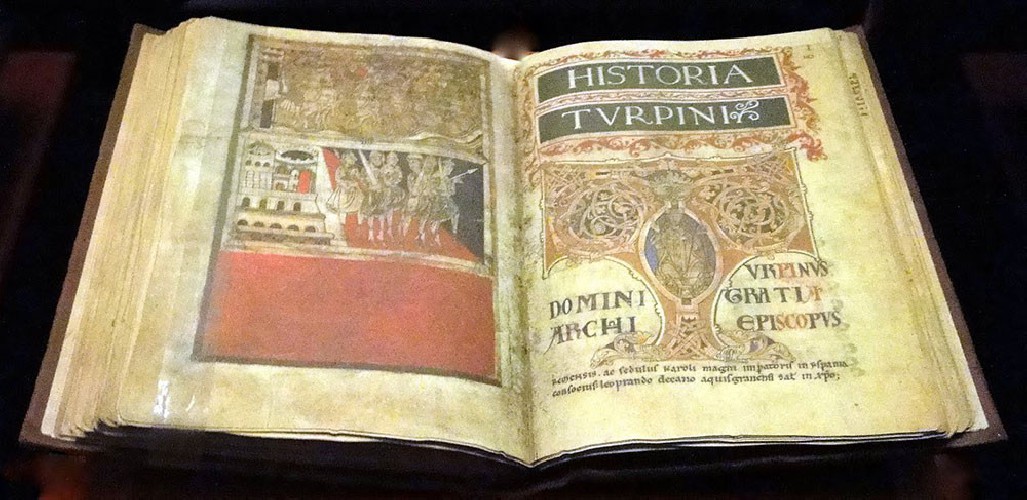 HISTORIA
TVRPINI
VRPINVS
DOMINI GRATIA
ARCHI EPISCOPVS
REMENSIS. ac sedulus karoli magni impatoris in yspania
consocius. leoprando decano aquisgranensi sal in xpo;